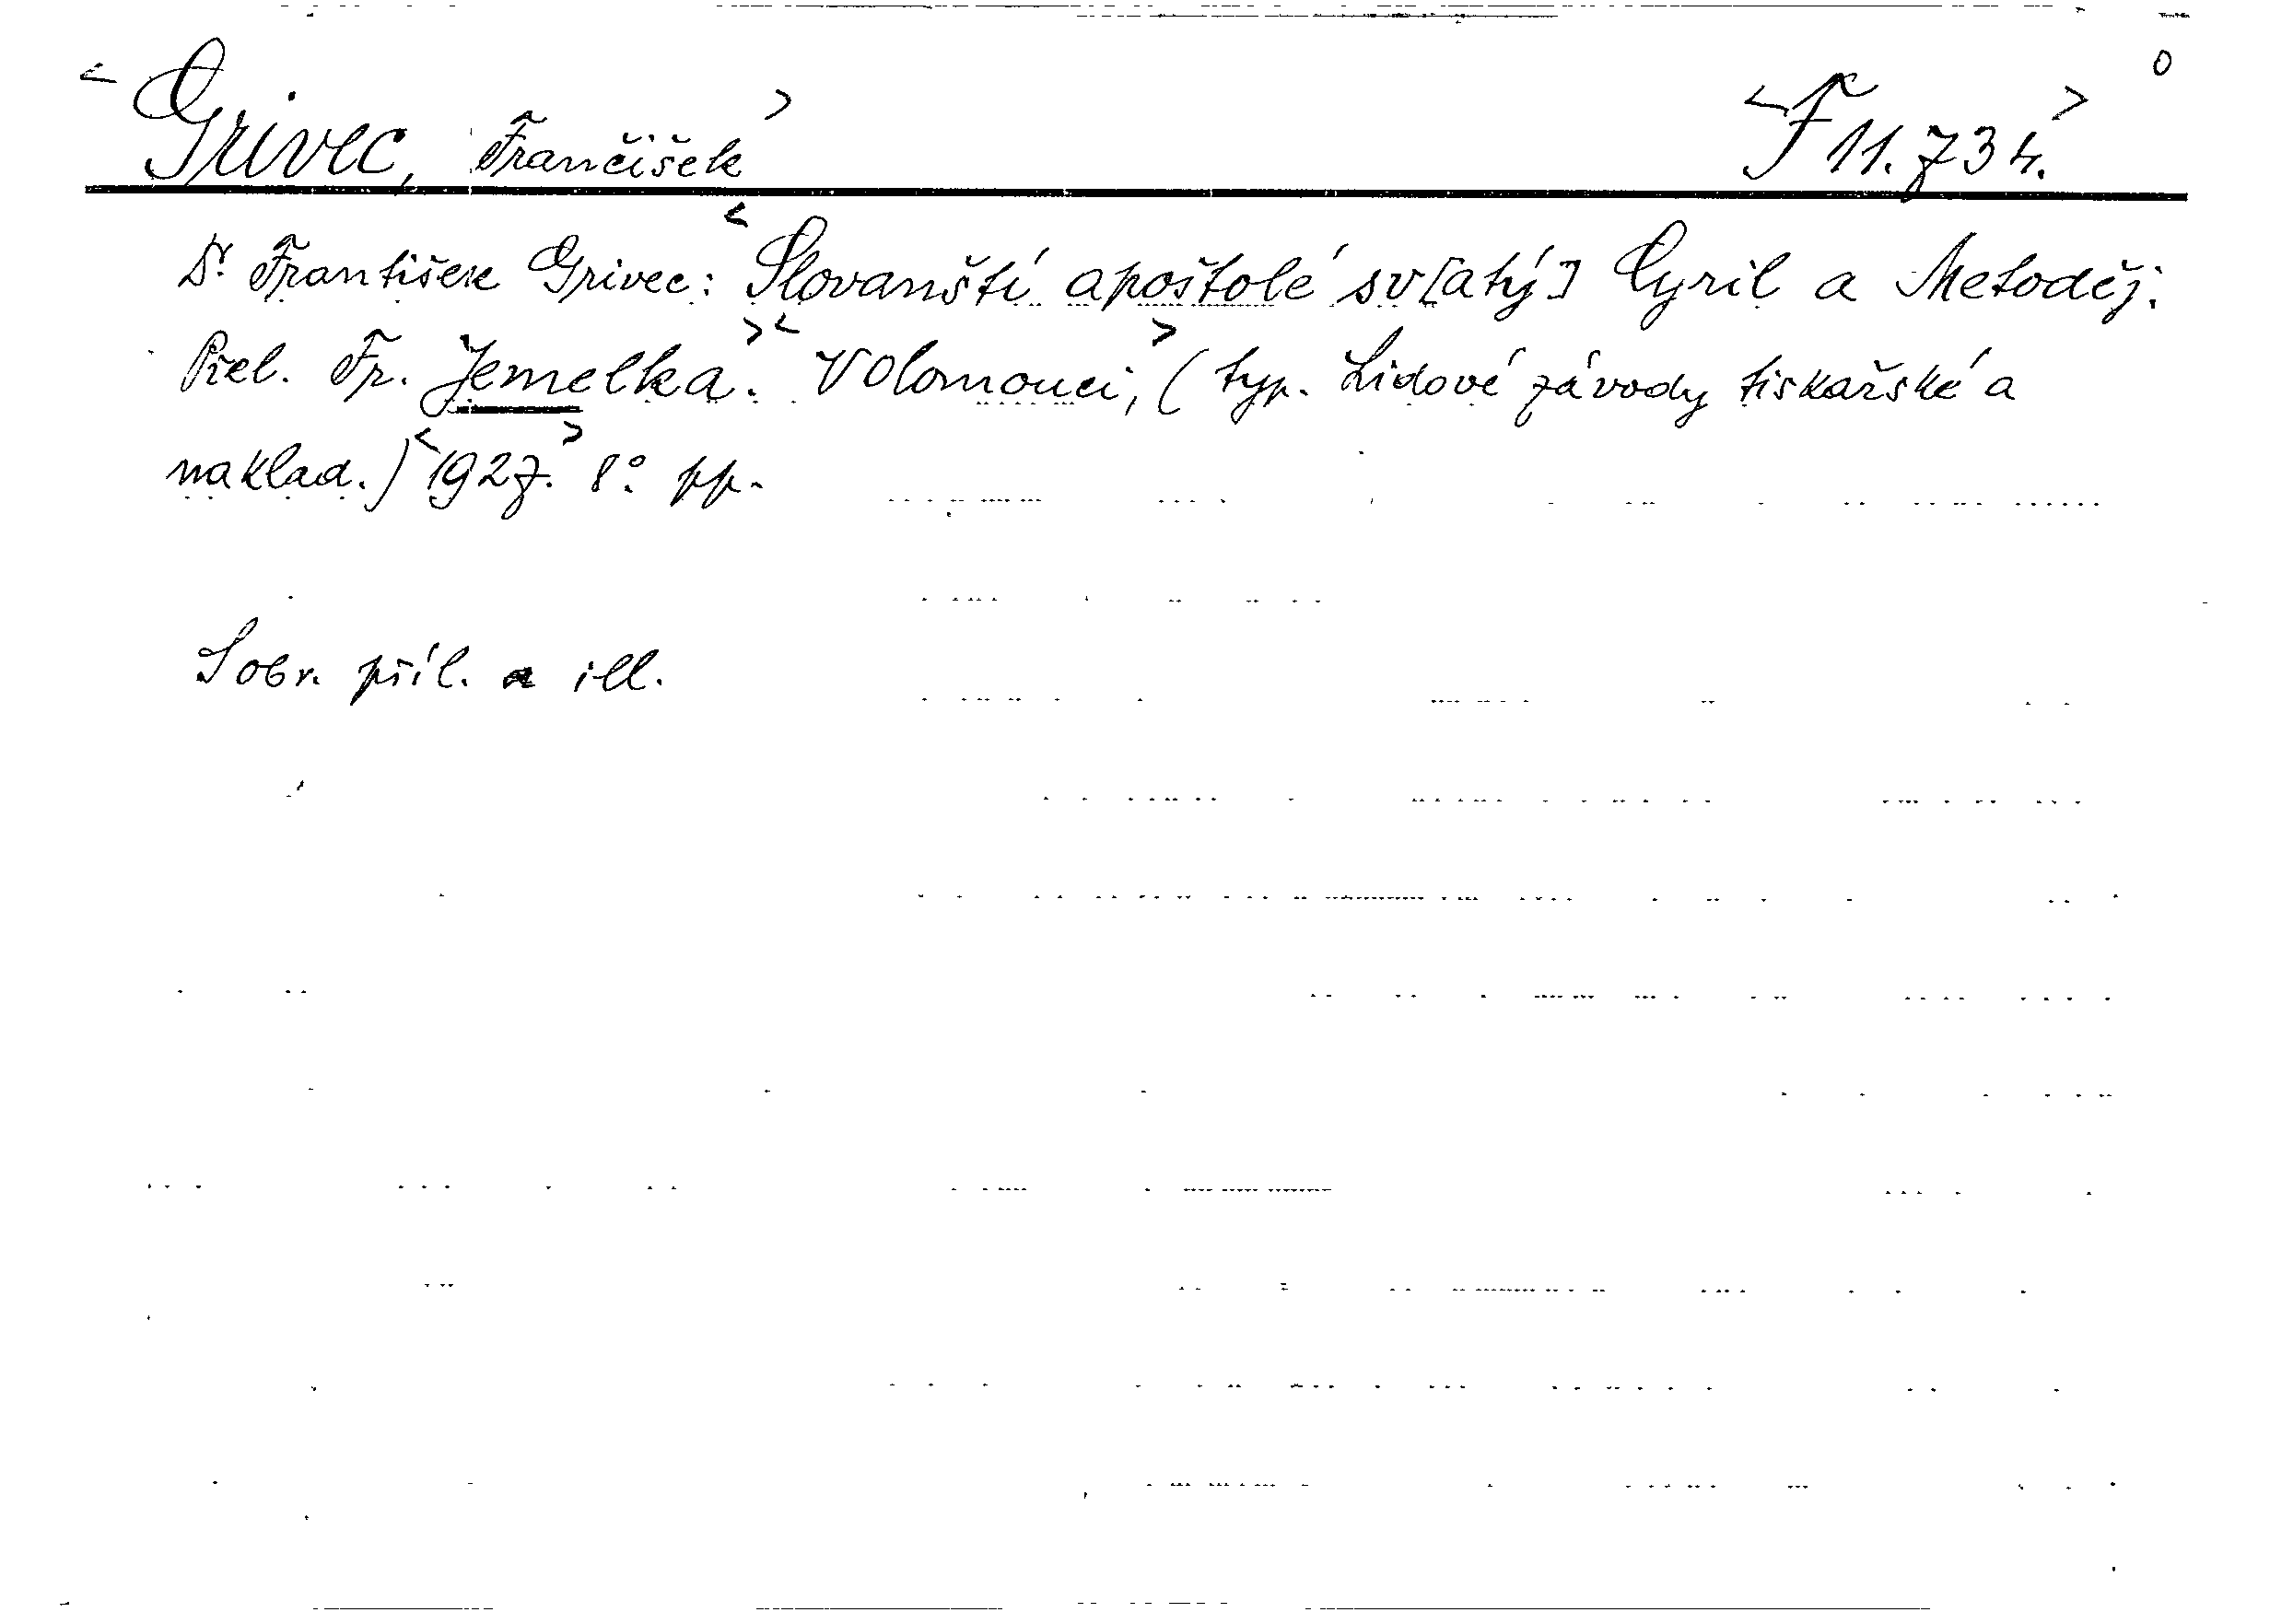 <Grivec, Frančišek> <F 11.734.> 0
Dr. František Grivec: <Slovanští apoštolé sv[atý] Cyril a Metoděj.
Přel. Fr. Jemelka.> <V Olomouci,> (typ. Lidové závody tiskařské a
naklad.) <1927.> 8° pp.
S obr. příl. a ill.